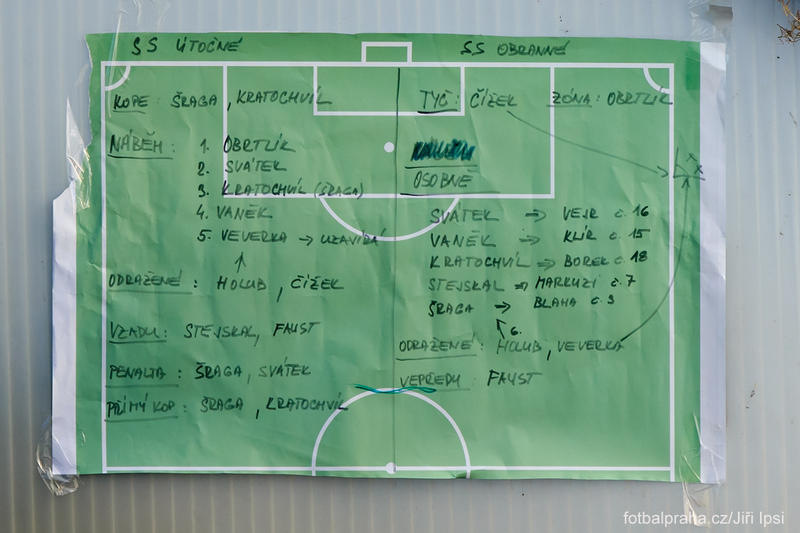 SS ÚTOČNÉ
KOPE: ŠRAGA, KRATOCHVÍL
NÁBĚH: 1. OBRTLÍK
2. SVÁTEK
3. KRATOCHVÍL (ŠRAGA)
4. VANĚK
5. VEVERKA → UZAVÍRÁ
ODRAŽENÉ: HOLUB, ČÍŽEK
VZADU: STEJSKAL, FAUST
PENALTA: ŠRAGA, SVÁTEK
PŘÍMÝ KOP: ŠRAGA, KRATOCHVÍL
SS OBRANNÉ
TYČ: ČÍŽEK ZÓNA: OBRTLÍK
OSOBNĚ
SVÁTEK → VEJR č.16
VANĚK → KLÍR č.15
KRATOCHVÍL → BOREK č.18
STEJSKAL → MARKUZI č.7
ŠRAGA → BLAHA č.3
6.
ODRAŽENÉ: HOLUB, VEVERKA
VEPŘEDU: FAUST
fotbalpraha.cz/Jiří Ipsi